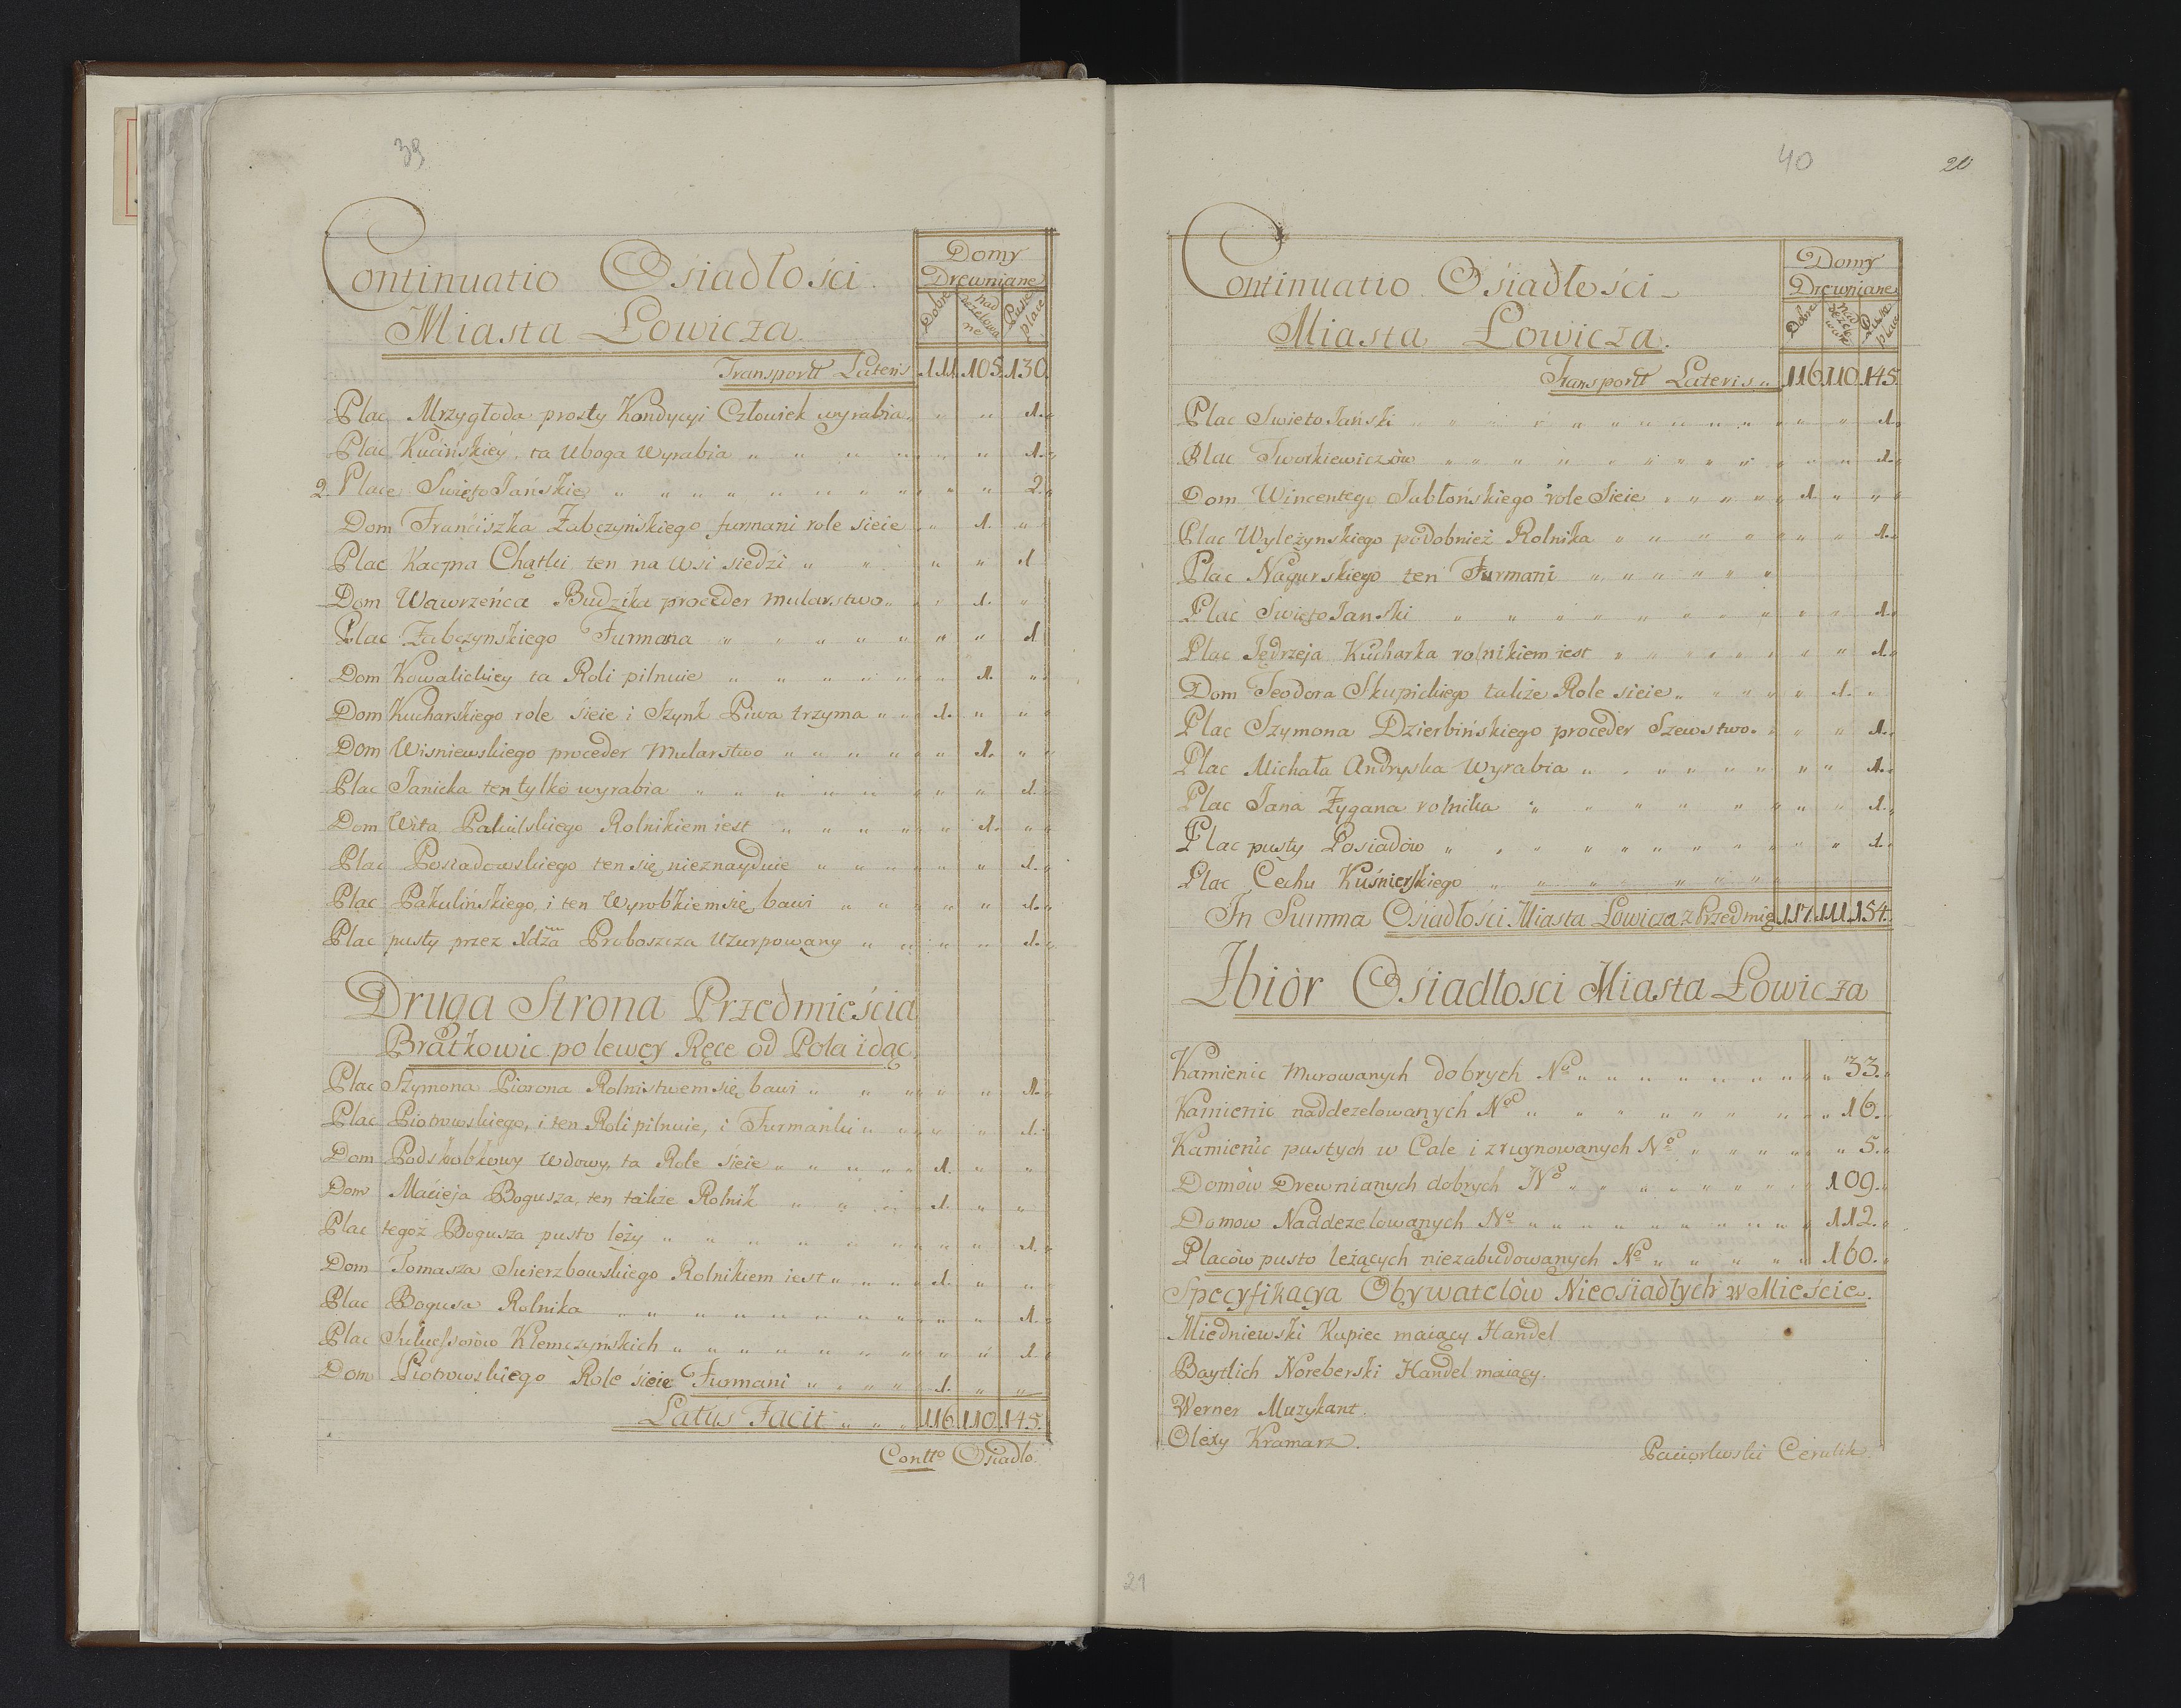 39
Continuatio Osiadłości
Miasta Łowicza.
Domy
Drewniane
Dobre
nad dezelowa ne
Puste place
Transportt Lateris 111. 105. 130.
Plac Mrzygłoda prosty Kondycyi Człowiek wyrabia „ „ 1. „
Plac Kucińskiey ta Uboga Wyrabia „ „ „ „ „ „ 1. „
2. Place Swięto Jańskie „ „ „ „ „ „ „ „ „ „ „ 2. „
Dom Franciszka Zabczyńskiego furmani role sieie „ „ 1. „
Plac Kacpra Chątki ten na Wsi siedzi „ „ „ „ 1
Dom Wawrzeńca Budzika proceder mularstwo „ „ 1. „
Plac Zabczynskiego Furmana „ „ „ „ „ „ „ 1
Dom Kowalickiey ta Roli pilnuie „ „ „ „ „ „ „ 1. „
Dom Kucharskiego role sieie i Szynk Piwa trzyma „ „ 1. „ „
Dom Wisniewskiego proceder Mularstwo „ „ „ „ „ „ 1. „ „
Plac Janicka ten tylko wyrabia „ „ „ „ „ „ „ „ 1. „
Dom Wita Pakulskiego Rolnikiem iest „ „ „ „ „ „ 1. „ „
Plac Posiadowskiego ten się nieznayduie „ „ „ „ „ „ 1. „
Plac Pakulińskiego, i ten Wyrobkiem się bawi „ „ „ „ „ 1. „
Plac pusty przez Xdza Proboszcza Uzurpowany „ „ „ „ 1. „
Druga Strona Przedmieścia
Bratkowic po lewey Ręce od Pola idąc.
Plac Szymona Piorona Rolnistwem się bawi „ „ „ „ „ 1. „
Plac Piotrowskiego, i ten Roli pilnuie, i Furmanki „ „ „ „ 1. „
Dom Podskobkowy Wdowy, ta Role sieie „ „ „ „ „ 1. „ „
Dom Macieja Bogusza, ten także Rolnik „ „ „ „ 1. „ „
Plac tegoż Bogusza pusto leży „ „ „ „ „ „ „ „ „ 1. „
Dom Tomasza Swierzbowskiego Rolnikiem iest „ „ „ „ 1. „ „
Plac Bogusa Rolnika „ „ „ „ „ „ „ „ „ „ „ 1. „
Plac Sukcessorów Klemczyńskich „ „ „ „ „ „ „ „ „ 1. „
Dom Piotrowskiego Role sieie Furmani „ „ „ „ 1. „ „
Latus Facit „ „ „ 116. 110. 145.
Contto Osiadło.
40
20
Continuatio Osiadłości
Miasta Łowicza.
Domy
Drewniane
Dobre
nad dezelo wane
Puste place
Transportt Lateris „ 116. 110. 145.
Plac Swieto Jański „ „ „ „ „ „ „ „ „ „ „ „ „ 1. „
Plac Tworkiewiczów „ „ „ „ „ „ „ „ „ „ „ „ 1. „
Dom Wincentego Jabłońskiego role Sieie „ „ „ „ „ 1. „ „ „
Plac Wyleżynskiego podobnież Rolnika „ „ „ „ „ „ „ 1. „
Plac Nagurskiego ten Furmani „ „ „ „ „ „
Plac Swięto Janski „ „ „ „ „ „ „ „ „ „ „ 1. „
Plac Jędrzeja Kucharka rolnikiem iest „ „ „ „ „ „ „ 1. „
Dom Teodora Skupickiego także Role sieie „ „ „ „ „ 1. „
Plac Szymona Dzierbińskiego proceder Szewstwo. „ „ „ 1. „
Plac Michała Andryska Wyrabia „ „ „ „ „ „ „ „ 1. „
Plac Jana Zygana rolnika „ „ „ „ „ „ „ „ 1. „
Plac pusty Posiadów „ „ „ „ „ „ „ „ „ „ „ 1. „
Plac Cechu Kuśnierskiego „ „ „ „ „ „ „ „
In Summa Osiadłości Miasta Łowicza z Przedmię 117. 111. 154.
Zbiór Osiadłosci Miasta Łowicza
Kamienic Murowanych dobrych No „ „ „ „ „ „ „ „ „ 33. „
Kamienic naddezelowanych No „ „ „ „ „ „ „ „ „ 16. „
Kamienic pustych w Cale i zruynowanych No „ „ „ „ „ „ 5. „
Domów Drewnianych dobrych No „ „ „ „ „ „ „ „ 109. „
Domow Naddezelowanych No „ „ „ „ „ „ „ „ „ 112. „
Placów pusto leżących niezabudowanych No „ „ „ „ „ 160. „
Specyfikacya Obywatelów Nieosiadłych w Mieście.
Miedniewski Kupiec maiący Handel
Baytlich Noreberski Handel maiący.
Werner Muzykant.
Olexy Kramarz.
Paciorkwski Cerulik.
21